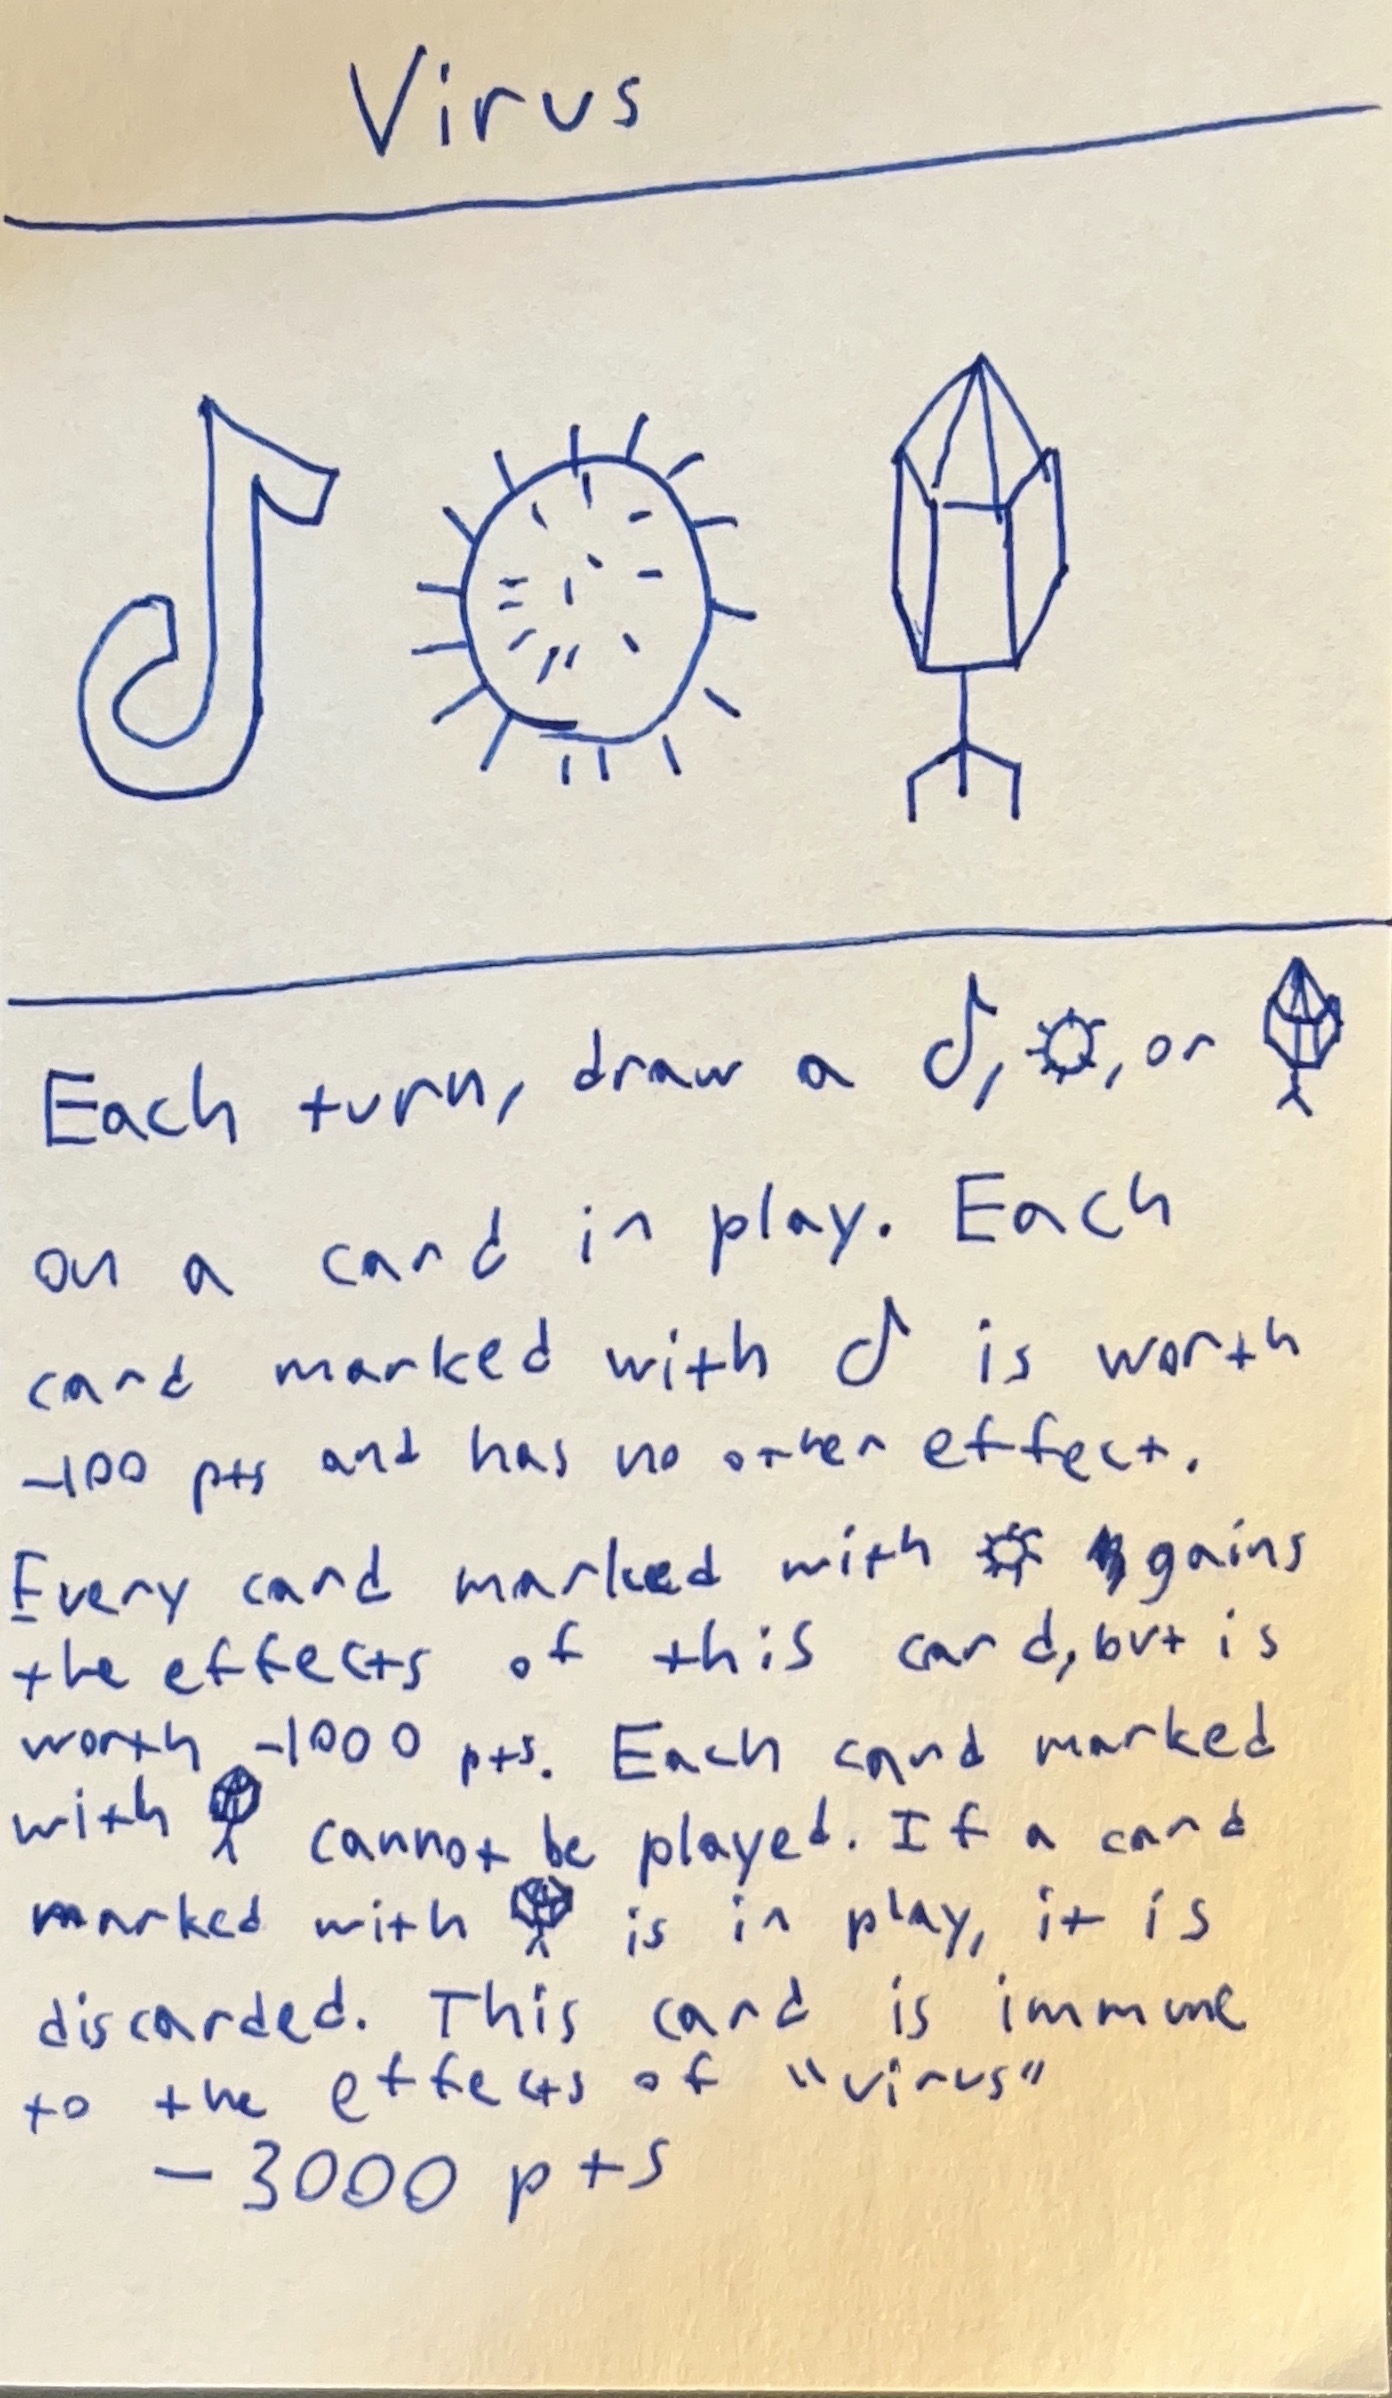 Virus
Each turn, draw a , , or
on a card in play. Each
card marked with is worth
-100 pts and has no other effect.
Every card marked with gains
the effects of this card, but is
worth -1000 pts. Each card marked
with cannot be played. If a card
marked with is in play, it is
discarded. This card is immune
to the effects of "virus"
-3000 pts